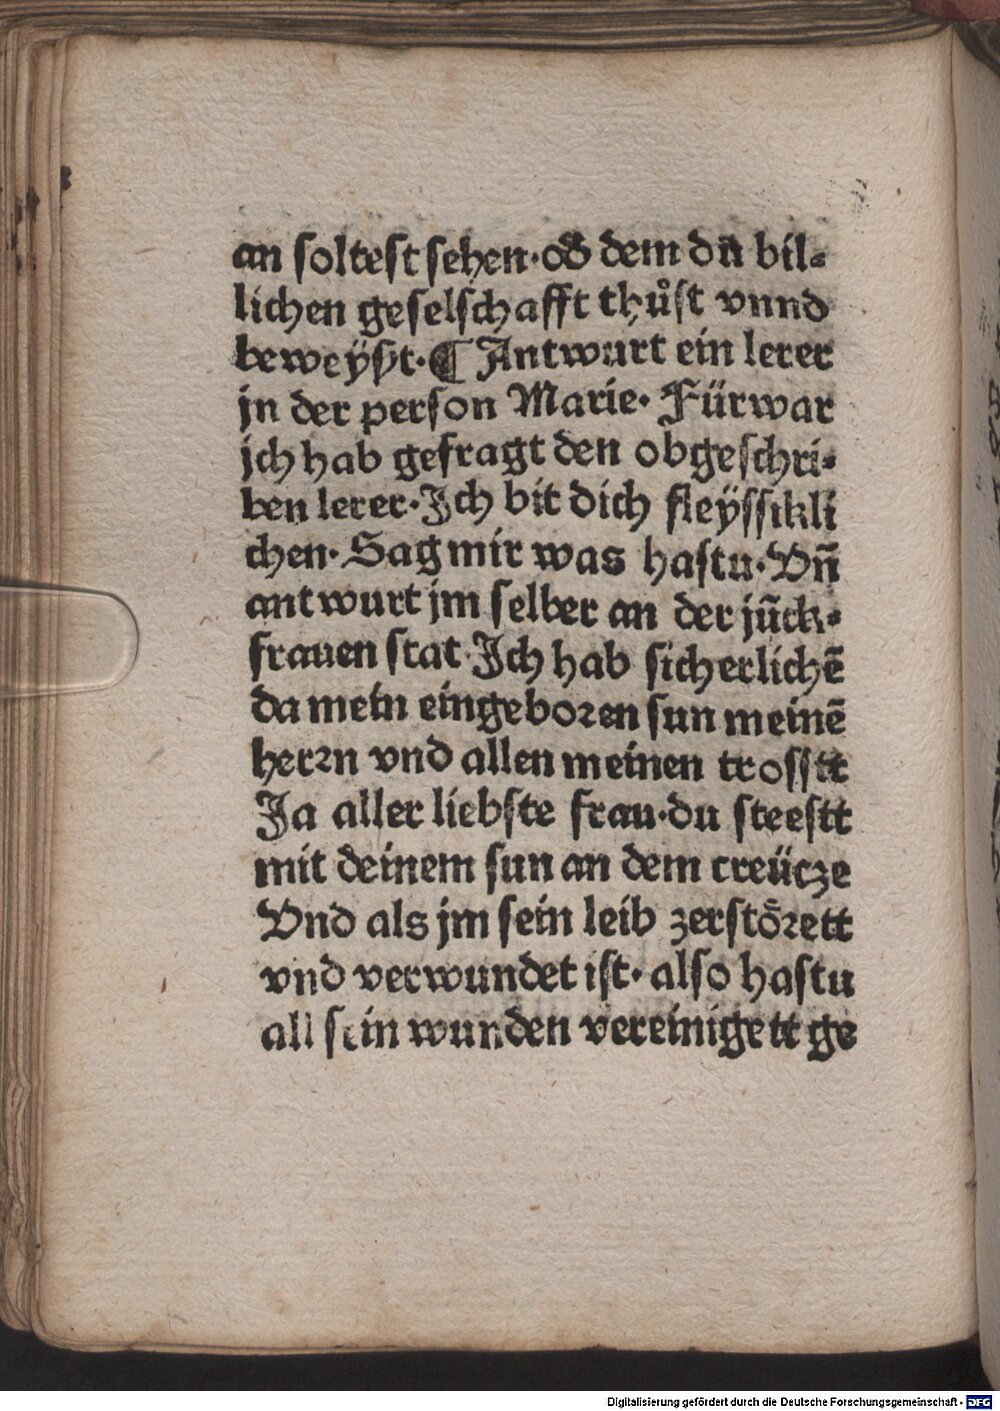 an soltest sehen·od̕ dem dū bil⸗
lichen geselschafft thůst vnnd
beweÿßt·¶ Antwurt ein lerer
jn der person Marie· Fürwar
jch hab gefragt den obgeschri⸗
ben lerer·Ich bit dich fleÿssikli
chen· Sag mir was hastu·Vn̄
antwurt jm selber an der jūck⸗
frauen stat·Ich hab sicherlichē
da mein eingeboren sun meinē
herrn vnd allen meinen trosstt
Ja aller liebste frau·du steestt
mit deinem sun an dem creücze
Vnd als jm sein leib zerstörett
vnd verwundet ist· also hastu
all sein wunden vereinigett ge
Digitalisierung gefördert durch die Deutsche Forschungsgemeinschaft - DFG